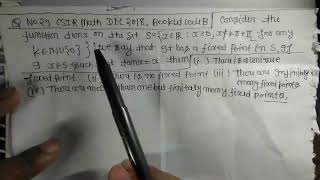 Q No 29 CSIR Math DEC 2018, Booklet code B) Consider the
function tanx on the set S={x∈R : x≥0, x≠kπ+π/2 for any
k∈NU{0}} We say that it has a fixed point in S, if
∃ x∈S such that tanx=x then (i) There is a unique
fixed point (ii) There is no fixed point (iii) There are infinitely
many fixed points
(iv) There are more than one but finitely many fixed points